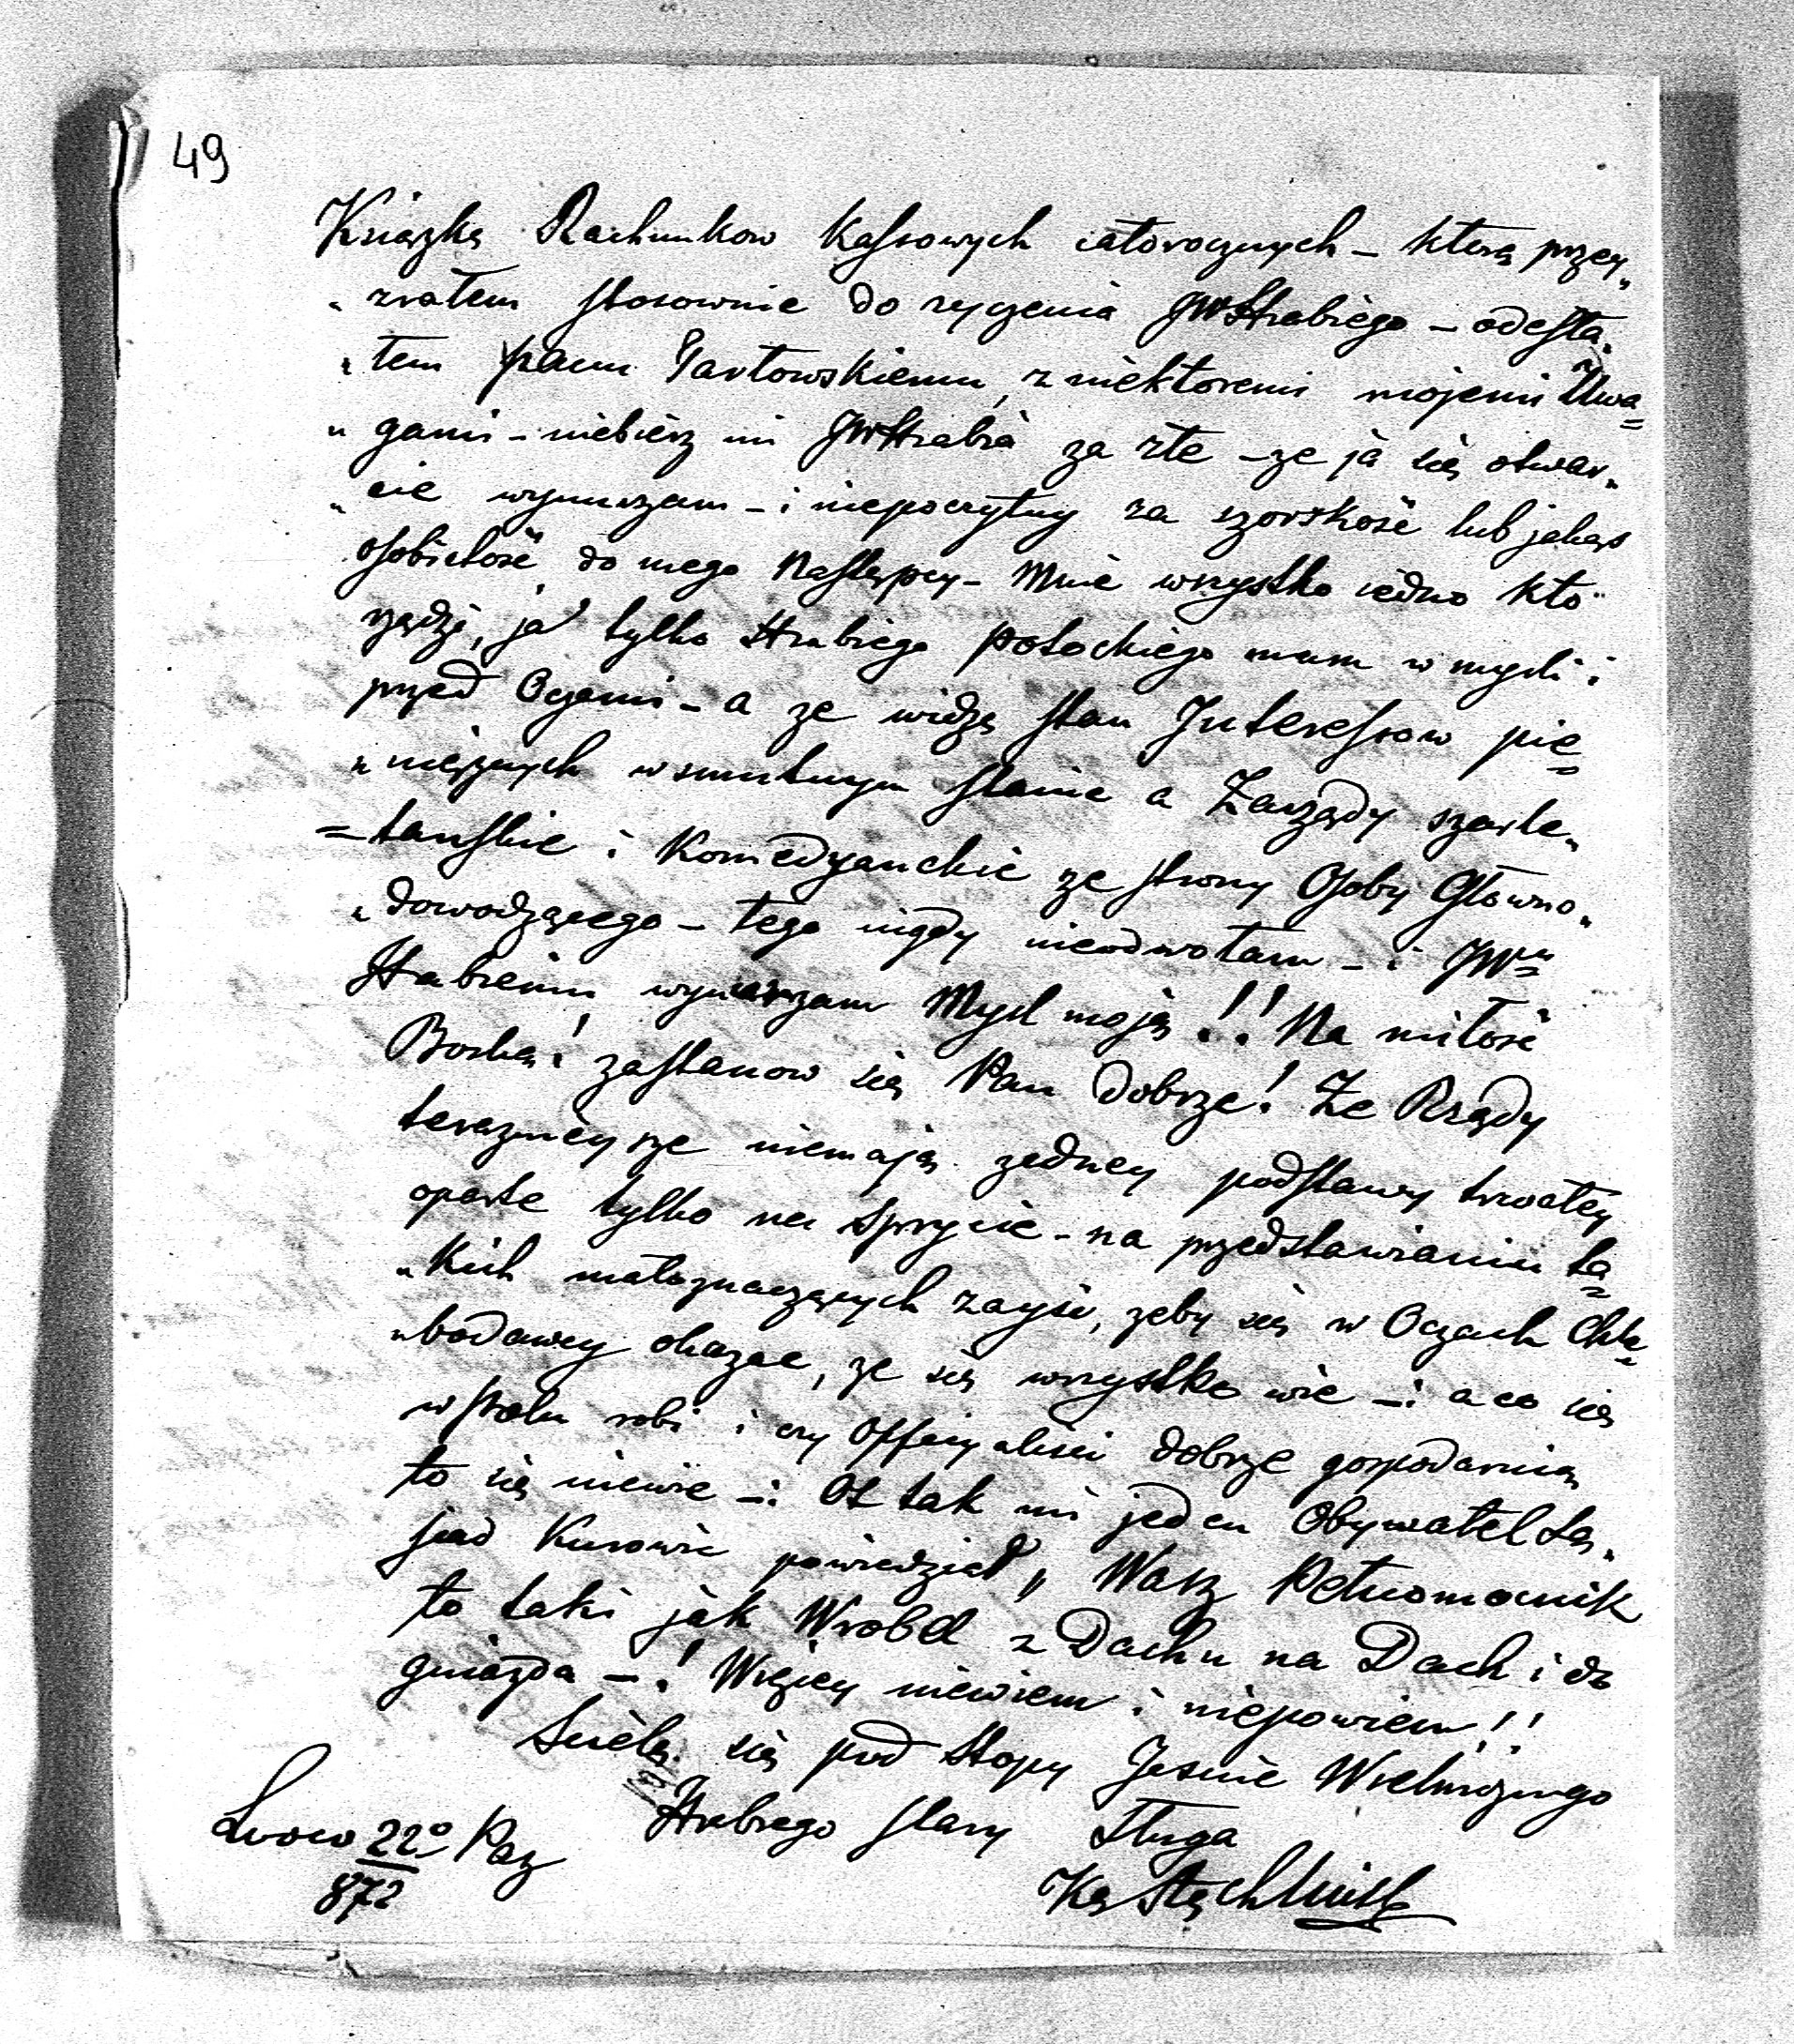 49
Książkę Rachunkow Kassowych całorocznych – którą przey„
„zrałem stosownie do zyczenia JWHrabiego – odesła„
„łem panu Gartowskiemu, z niektoremi mojemi Uwa=
„gami – niebierz mi JWHrabia za złe – ze ja się otwar„
„cie wynurzam – i niepoczytuy za szorskość lub jakąś
osobistość do mego Następcy – Mnie wszystko iedno kto
rządzi, ja tylko Hrabiego Potockiego mam w mysli i
przed Oczami – a ze widzę stan Interessow pie=
„niężnych w smutnym stanie a Zarządy szarla„
=tanskie i Komedyanckie ze strony Osoby Głowno„
„dowodzącego – tego nigdy nieodwołam – i JWu
Hrabiemu wynurzam Mysl moją!! Na miłość
Boską! zastanow się Pan dobrze! Ze Rządy
terazniéysze niemają zadney podstawy trwałey
oparte tylko na sprycie – na przedstawianiu ta=
„kich małoznaczących zayść, zeby się w Oczach Chle„
„bodawcy okazac, ze się wszystko wie –: a co się
w polu robi i czy Officyalisci dobrze gospodaruią
to się niewie –: Ot tak mi jeden Obywatel Są„
siad Kurowic powiedział „Wasz Pełnomocnik
to taki jak Wrobel z Dachu na Dach i do
gniazda –! Więcey niewiem i niepowiem!!
Scielę się pod Stopy Jasnie Wielmoznego
Hrabiego stary Sługa
Lwow 22° Paz
872